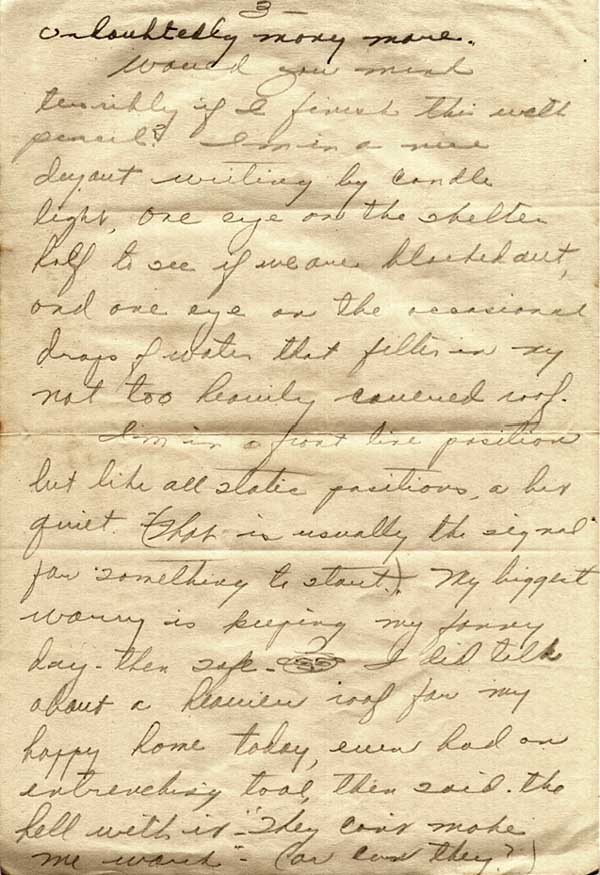 3 -
undoubtedly many more.
Would you mind
terribly if I finish this with
pencil? I'm in a nice
dugout writing by candle
light, one eye on the shelter
half to see if we are blacked out,
and one eye on the occasional
drops of water that filter in my
not too heavily covered roof.
I'm in a front line position
but like all static positions, a bit
quiet. (That is usually the signal
for something to start.). My biggest
worry is keeping my fanny
dry - then safe - I did talk
about a heavier roof for my
happy home today, even had an
entrenching tool, then said - the
hell with it - "They can't make
me work" - (or can they?)